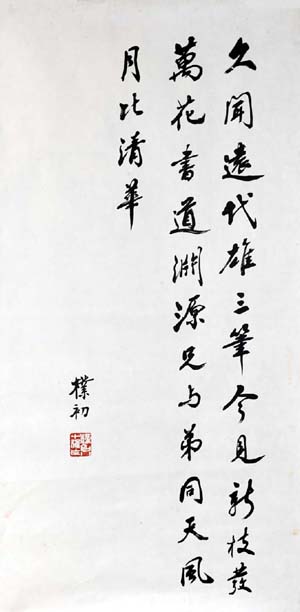 久聞遠代雄三筆今見新枝發
萬花書道淵源兄与弟同天風
月比清華
樸初